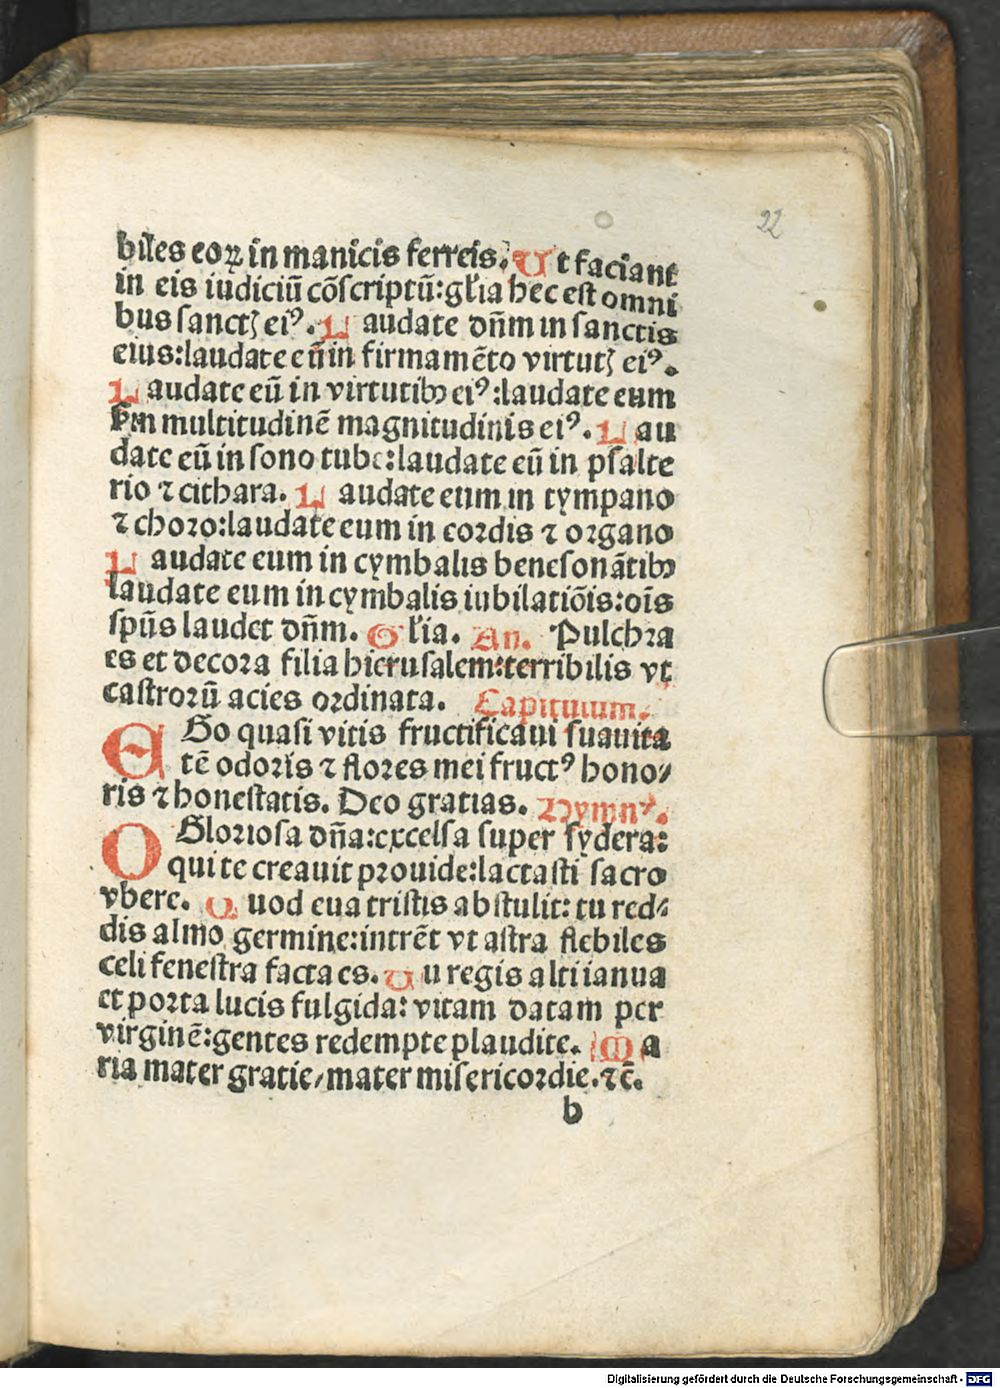 22
biles eoꝝ in manicis ferreis. Ut faciant
in eis iudiciū cōscriptū:gl̄ia hec est omni
bus sanctꝭ eiꝰ. Laudate dn̄m in sanctis
eius:laudate eū in firmamēto virtutꝭ eiꝰ.
Laudate eū in virtutibꝫ eiꝰ:laudate eum
scd̄m multitudinē magnitudinis eiꝰ. Lau
date eū in sono tube:laudate eū in psalte
rio ⁊ cithara. Laudate eum in tympano
⁊ choro:laudate eum in cordis ⁊ organo
Laudate eum in cymbalis benesonātibꝫ
laudate eum in cymbalis iubilatiōis:oīs
sp̄ūs laudet dn̄m. Gl̄ia. An. Pulchra
es et decora filia hierusalem:terribilis vt
castrorū acies ordinata. Capitulum.
EGo quasi vitis fructificaui suauita
tē odoris ⁊ flores mei fructꝰ hono⸗
ris ⁊ honestatis. Deo gratias. Hymnꝰ.
OGloriosa dn̄a:excelsa super sydera:
qui te creauit prouide:lactasti sacro
vbere. Quod eua tristis abstulit: tu red⸗
dis almo germine:intrēt vt astra flebiles
celi fenestra facta es. Tu regis alti ianua
et porta lucis fulgida: vitam datam per
virginē:gentes redempte plaudite. Ma
ria mater gratie/mater misericordie.⁊c̄.
b
Digitalisierung gefördert durch die Deutsche Forschungsgemeinschaft - DFG